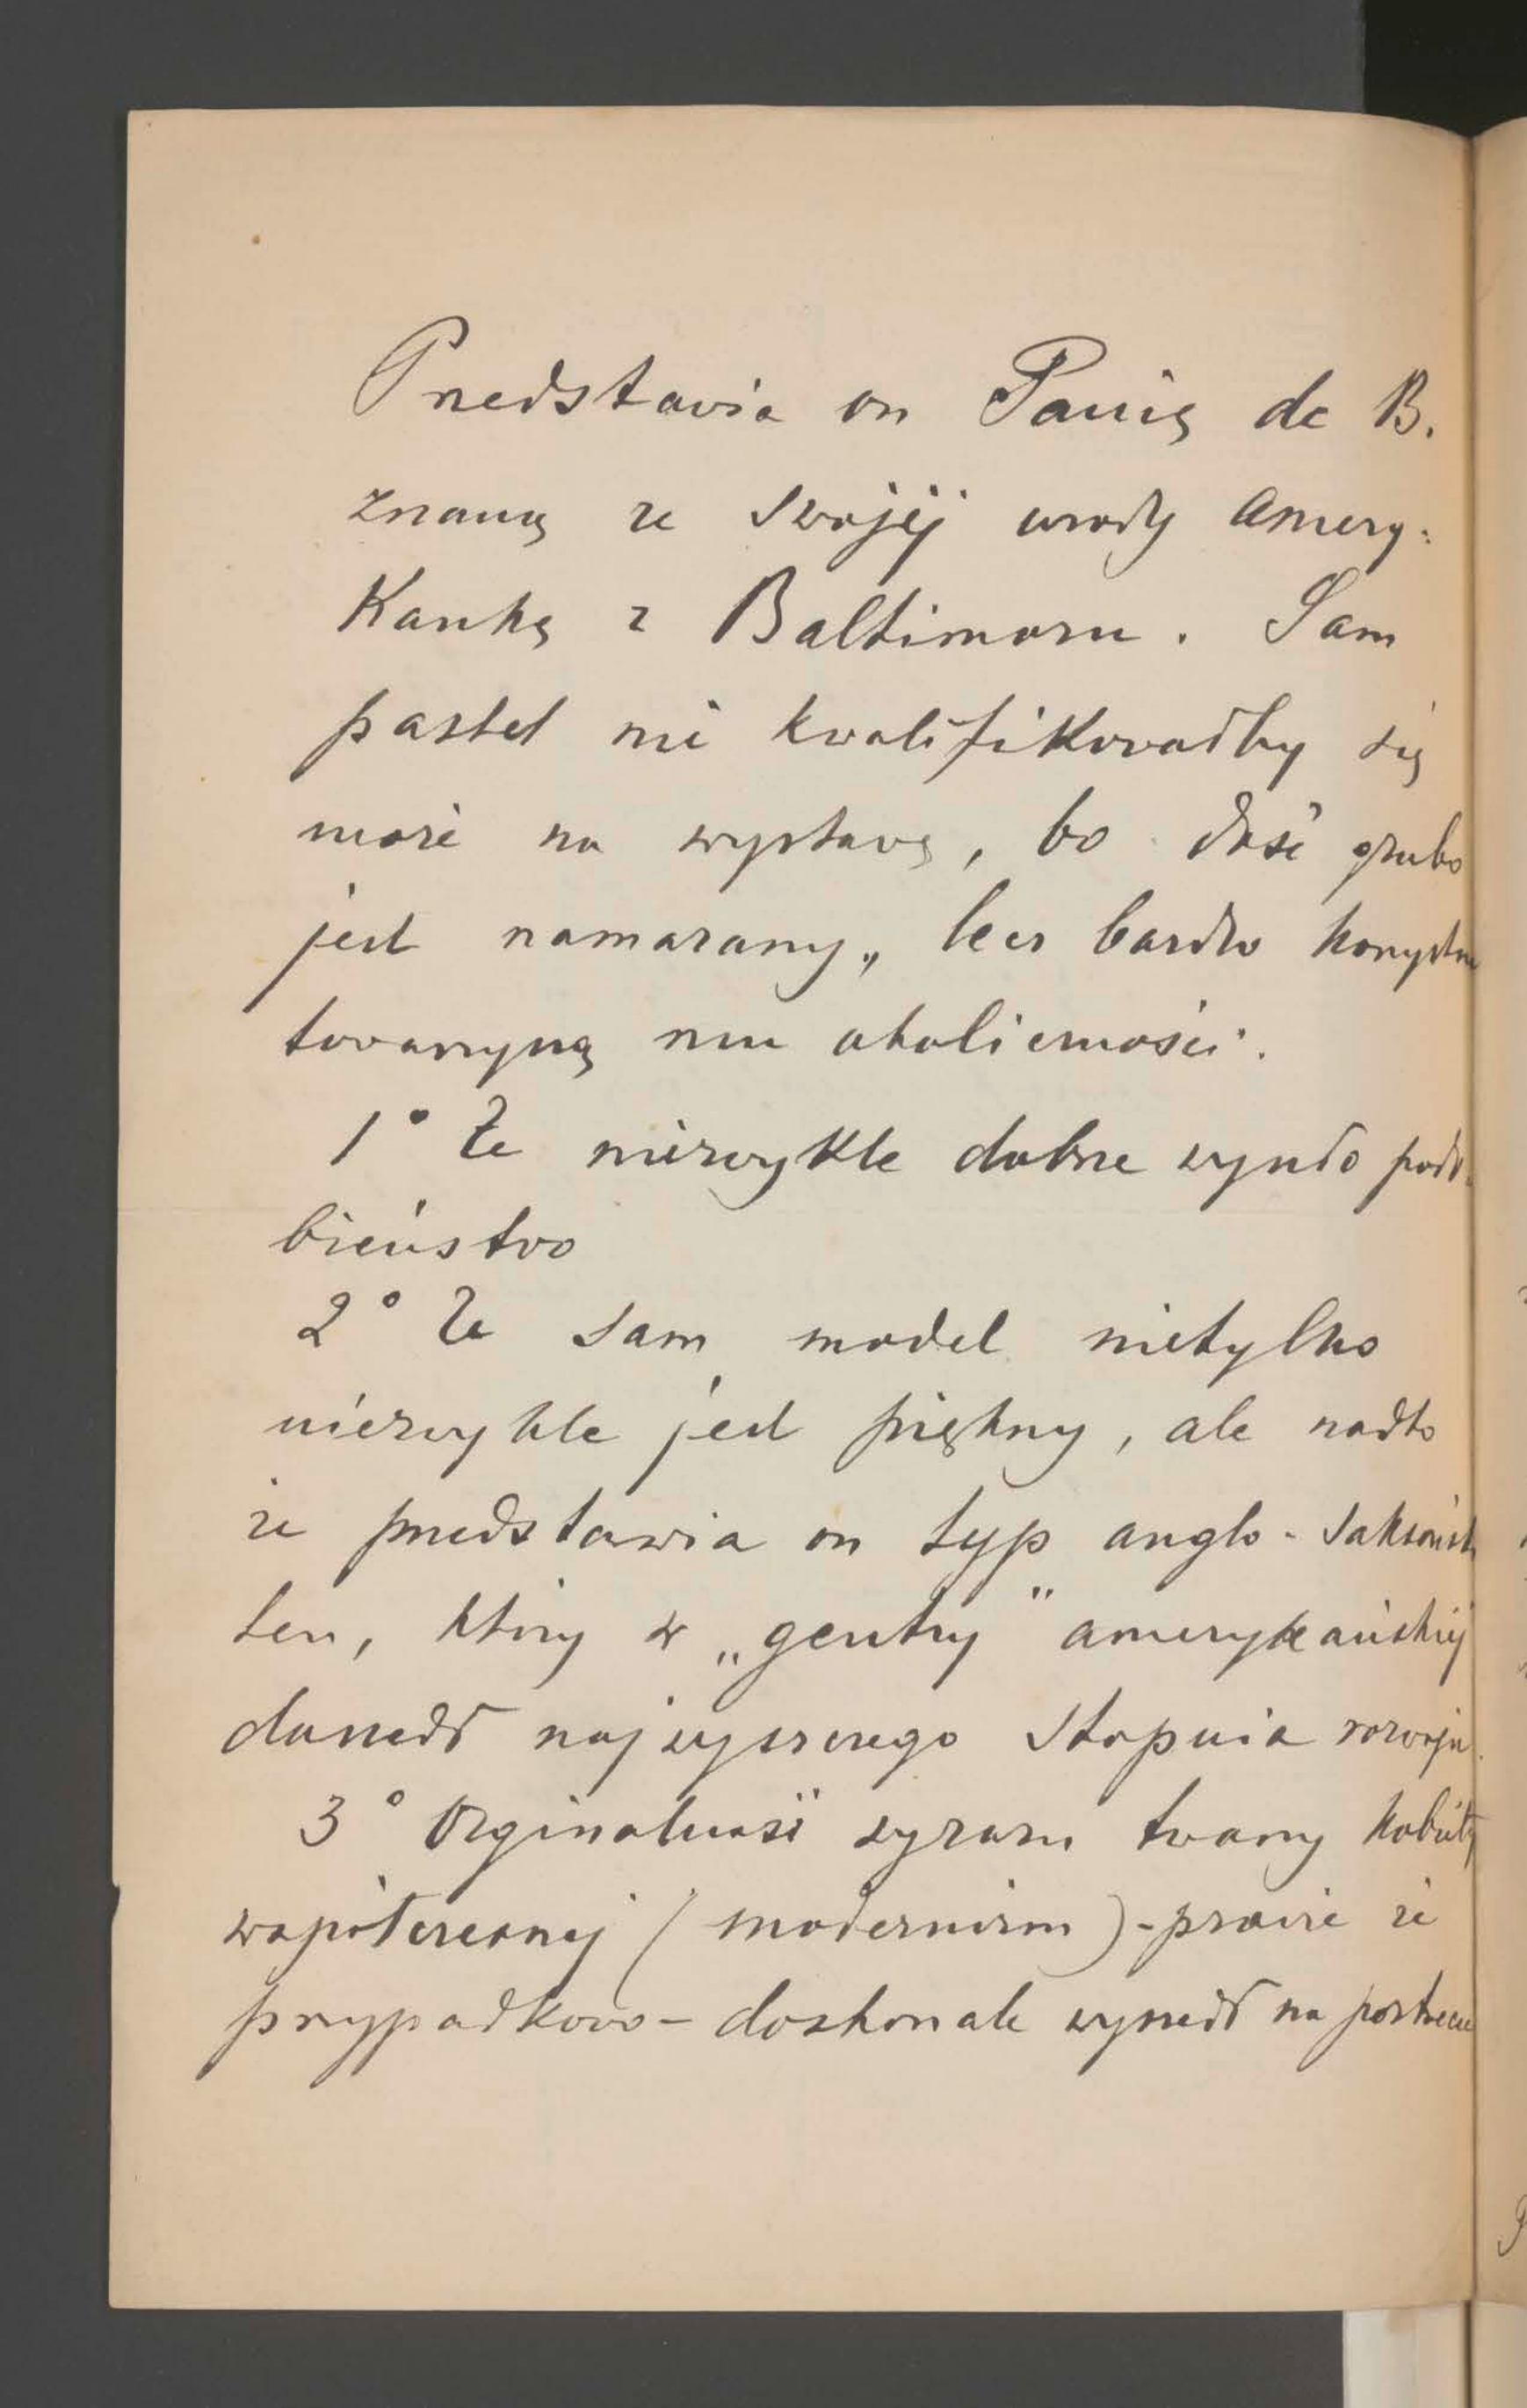 Przedstawia on Panią de B.
znaną ze swojej urody Amery-
kankę z Baltimoru. Sam
pastel nie kwalifikowałby się
może na wystawę, bo dość grubo
jest namazany, lecz bardzo korzystne
towarzyszą mu okoliczności.
1° Że niezwykle dobrze wyszło podo-
bieństwo
2° Że sam model nietylko
niezwykle jest piękny, ale nadto
że przedstawia on typ anglo-saksoński
ten, który w „gentry" amerykańskiej
doszedł najwyższego stopnia rozwoju.
3° Orginalność wyrazu twarzy kobiety
współczesnej (modernizm) - prawie że
przypadkowo - doskonale wyszedł na portrecie